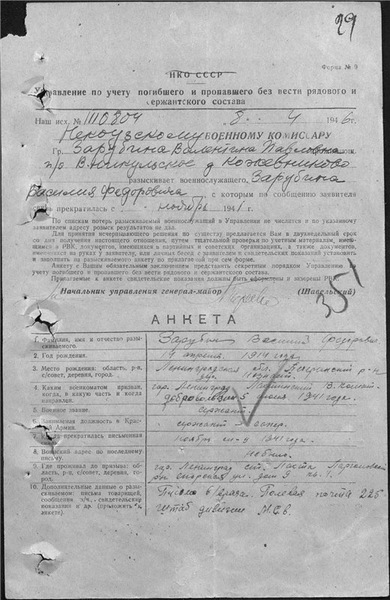 29
НКО СССР
Форма № 9
Управление по учету погибшего и пропавшего без вести рядового и
сержантского состава
Наш исх. № 110804 8. 4 1946 г.
Некоузскому ВОЕННОМУ КОМИССАРУ
Гр. Зарубина Валентина Павловна
п/о В. Никульское д. Кожевниково
разыскивает военнослужащего, Зарубина
Василия Федоровича с которым по сообщению заявителя
прекратилась ноябрь 1941 г.
По спискам потерь разыскиваемый военнослужащий в Управлении не числится и по указанному
заявителем адресу розыск результатов не дал.
Для принятия исчерпывающих решения по существу предлагается Вам в двухнедельный срок
со дня получения настоящего отношения, путем тщательной проверки по учетным материалам,
в РВК, документов, имеющихся в партийных и советских организациях, а также документов,
имеющихся на руках у заявителя, для данных бесед с заявителем и свидетельских показаний установить и
заполнить на разыскиваемого анкету по прилагаемой при сем форме.
Анкету с Вашим обязательным заключением представить секретным порядком Управлению
учету погибшего и пропавшего без вести рядового и сержантского состава.
Прилагаемые к анкете свидетельские показания должны быть оформлены и заверены РВК.
Начальник управления генерал-майор (Шавельский)
351
АНКЕТА
1. Фамилия, имя и отчество разыскиваемого. Зарубин Василий Федорович
2. Год рождения. 19 апреля 1914 года.
3. Место рождения: область, р-н, с/совет, деревня, город. Ленинградская обл. р-н
4. Каким военкоматом призван, когда, в какую часть и когда направлен. гор. Ленинград
добровольцем 5 июля 1941 года.
5. Военное звание. сержант
6. Занимаемая должность в Красной Армии. сержант
7. Когда прекратилась письменная ноябрь м-ц 1941 года.
8. Воинский адрес по последнему письму.
9. Где проживал до призыва: область, р-н, с/совет, деревня, город. гор. Ленинград
10. Дополнительные данные о разыскиваемом: письма товарищей, сообщения, свидетельские показания и др. (приложить к анкете). Полевая почта 225
штаб дивизии М.С.В.